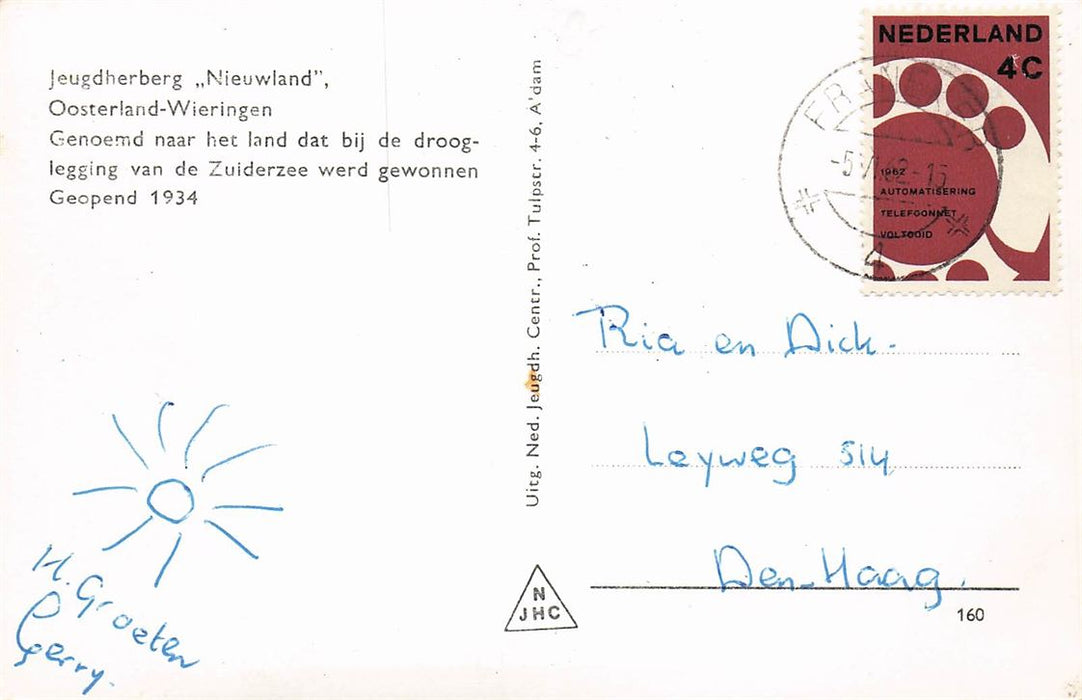 Jeugdherberg „Nieuwland”,
Oosterland-Wieringen
Genoemd naar het land dat bij de droog-
legging van de Zuiderzee werd gewonnen
Geopend 1934
H. Groeten
Gerry.
Uitg. Ned. Jeugdh. Centr., Prof. Tulpstr. 4-6, A'dam
N
JHC
NEDERLAND
4C
1962
AUTOMATISERING
TELEFOONNET
VOLTOOID
Ria en Dick.
Leyweg 514
Den-Haag.
160